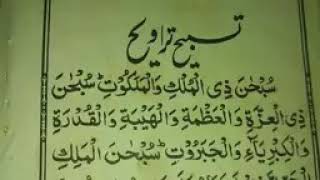 تسبیح تراویح
سُبْحٰنَ ذِی الْمُلْکِ وَالْمَلَکُوْتِ ؕ سُبْحٰنَ
ذِی الْعِزَّةِ وَالْعَظَمَةِ وَالْهَیْبَةِ وَالْقُدْرَةِ
وَالْکِبْرِیَآءِ وَالْجَبَرُوْتِ ؕ سُبْحٰنَ الْمَلِکِ